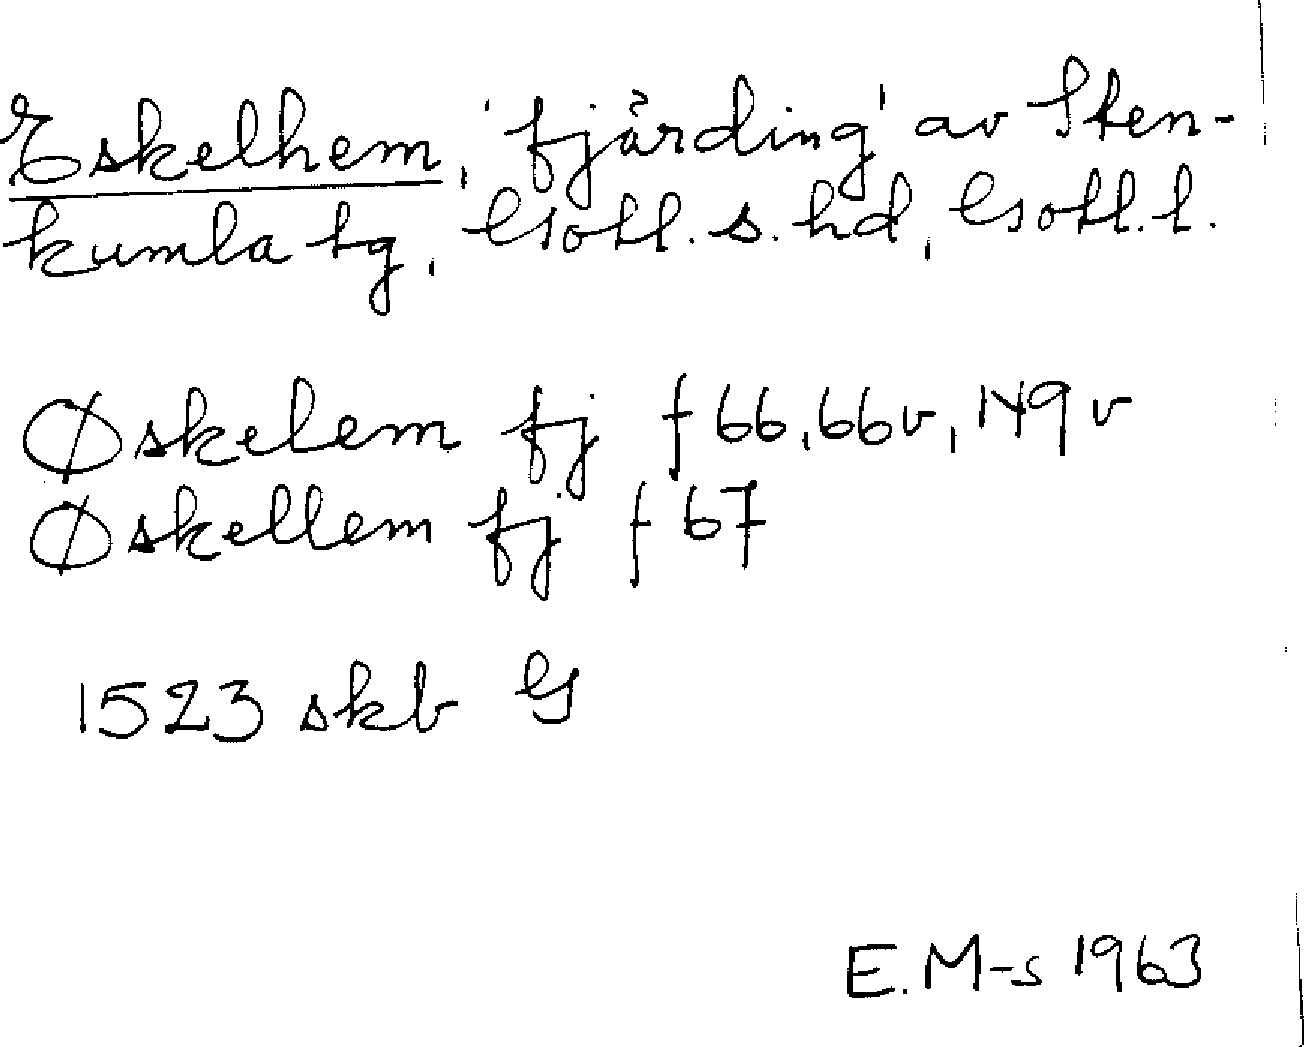 Eskelhem, 'fjärding' av Sten-
kumla tg, Gotl. s. hd, Gotl. l.
Øskelem fj f 66, 66v, 149 v
Øskellem fj f 67
1523 skb G
E. M-s 1963